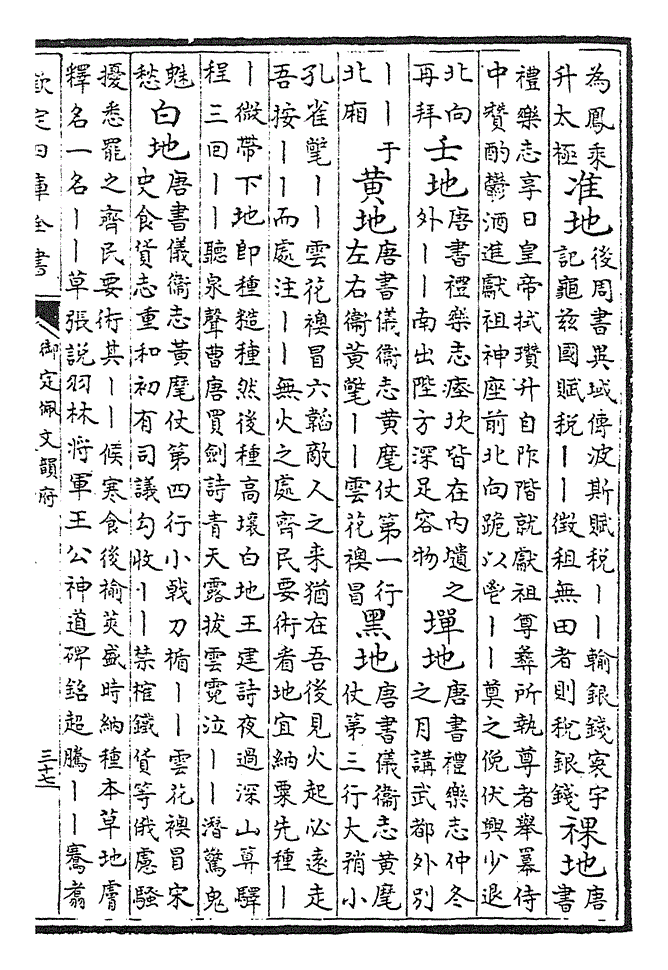 為鳳乘
升太極
准地
後周書異域傳波斯賦税丨丨輸銀錢寰宇
記龜兹國賦税丨丨徴租無田者則税銀錢
祼地
唐
書
禮樂志享日皇帝拭瓚升自阼階就獻祖尊彛所執尊者舉羃侍
中賛酌鬱酒進獻祖神座前北向跪以鬯丨丨奠之俛伏興少退
北向
再拜
壬地
唐書禮樂志瘞坎皆在内壝之
外丨丨南出陛方深足容物
墠地
唐書禮樂志仲冬
之月講武都外别
丨丨于
北廂
黃地
唐書儀衞志黄麾仗第一行
左右衞黄氅丨丨雲花襖冒
黑地
唐書儀衞志黄麾
仗第三行大矟小
孔雀氅丨丨雲花襖冒六韜敵人之来猶在吾後見火起必逺走
吾按丨丨而處注丨丨無火之處齊民要術看地宜納粟先種丨
丨微帶下地即種糙種然後種高壤白地王建詩夜過深山算驛
程三回丨丨聽泉聲曹唐買劍詩青天露拔雲霓泣丨丨潛驚鬼
魅
愁
白地
唐書儀衞志黄麾仗第四行小戟刀楯丨丨雲花襖冒宋
史食貨志重和初有司議勾收丨丨禁榷鐵貨等俄慮騷
擾悉罷之齊民要術其丨丨候寒食後榆莢盛時納種本草地膚
釋名一名丨丨草張說羽林将軍王公神道碑銘超騰丨丨騫翥
欽定四庫全書
御定佩文韻府
三十七